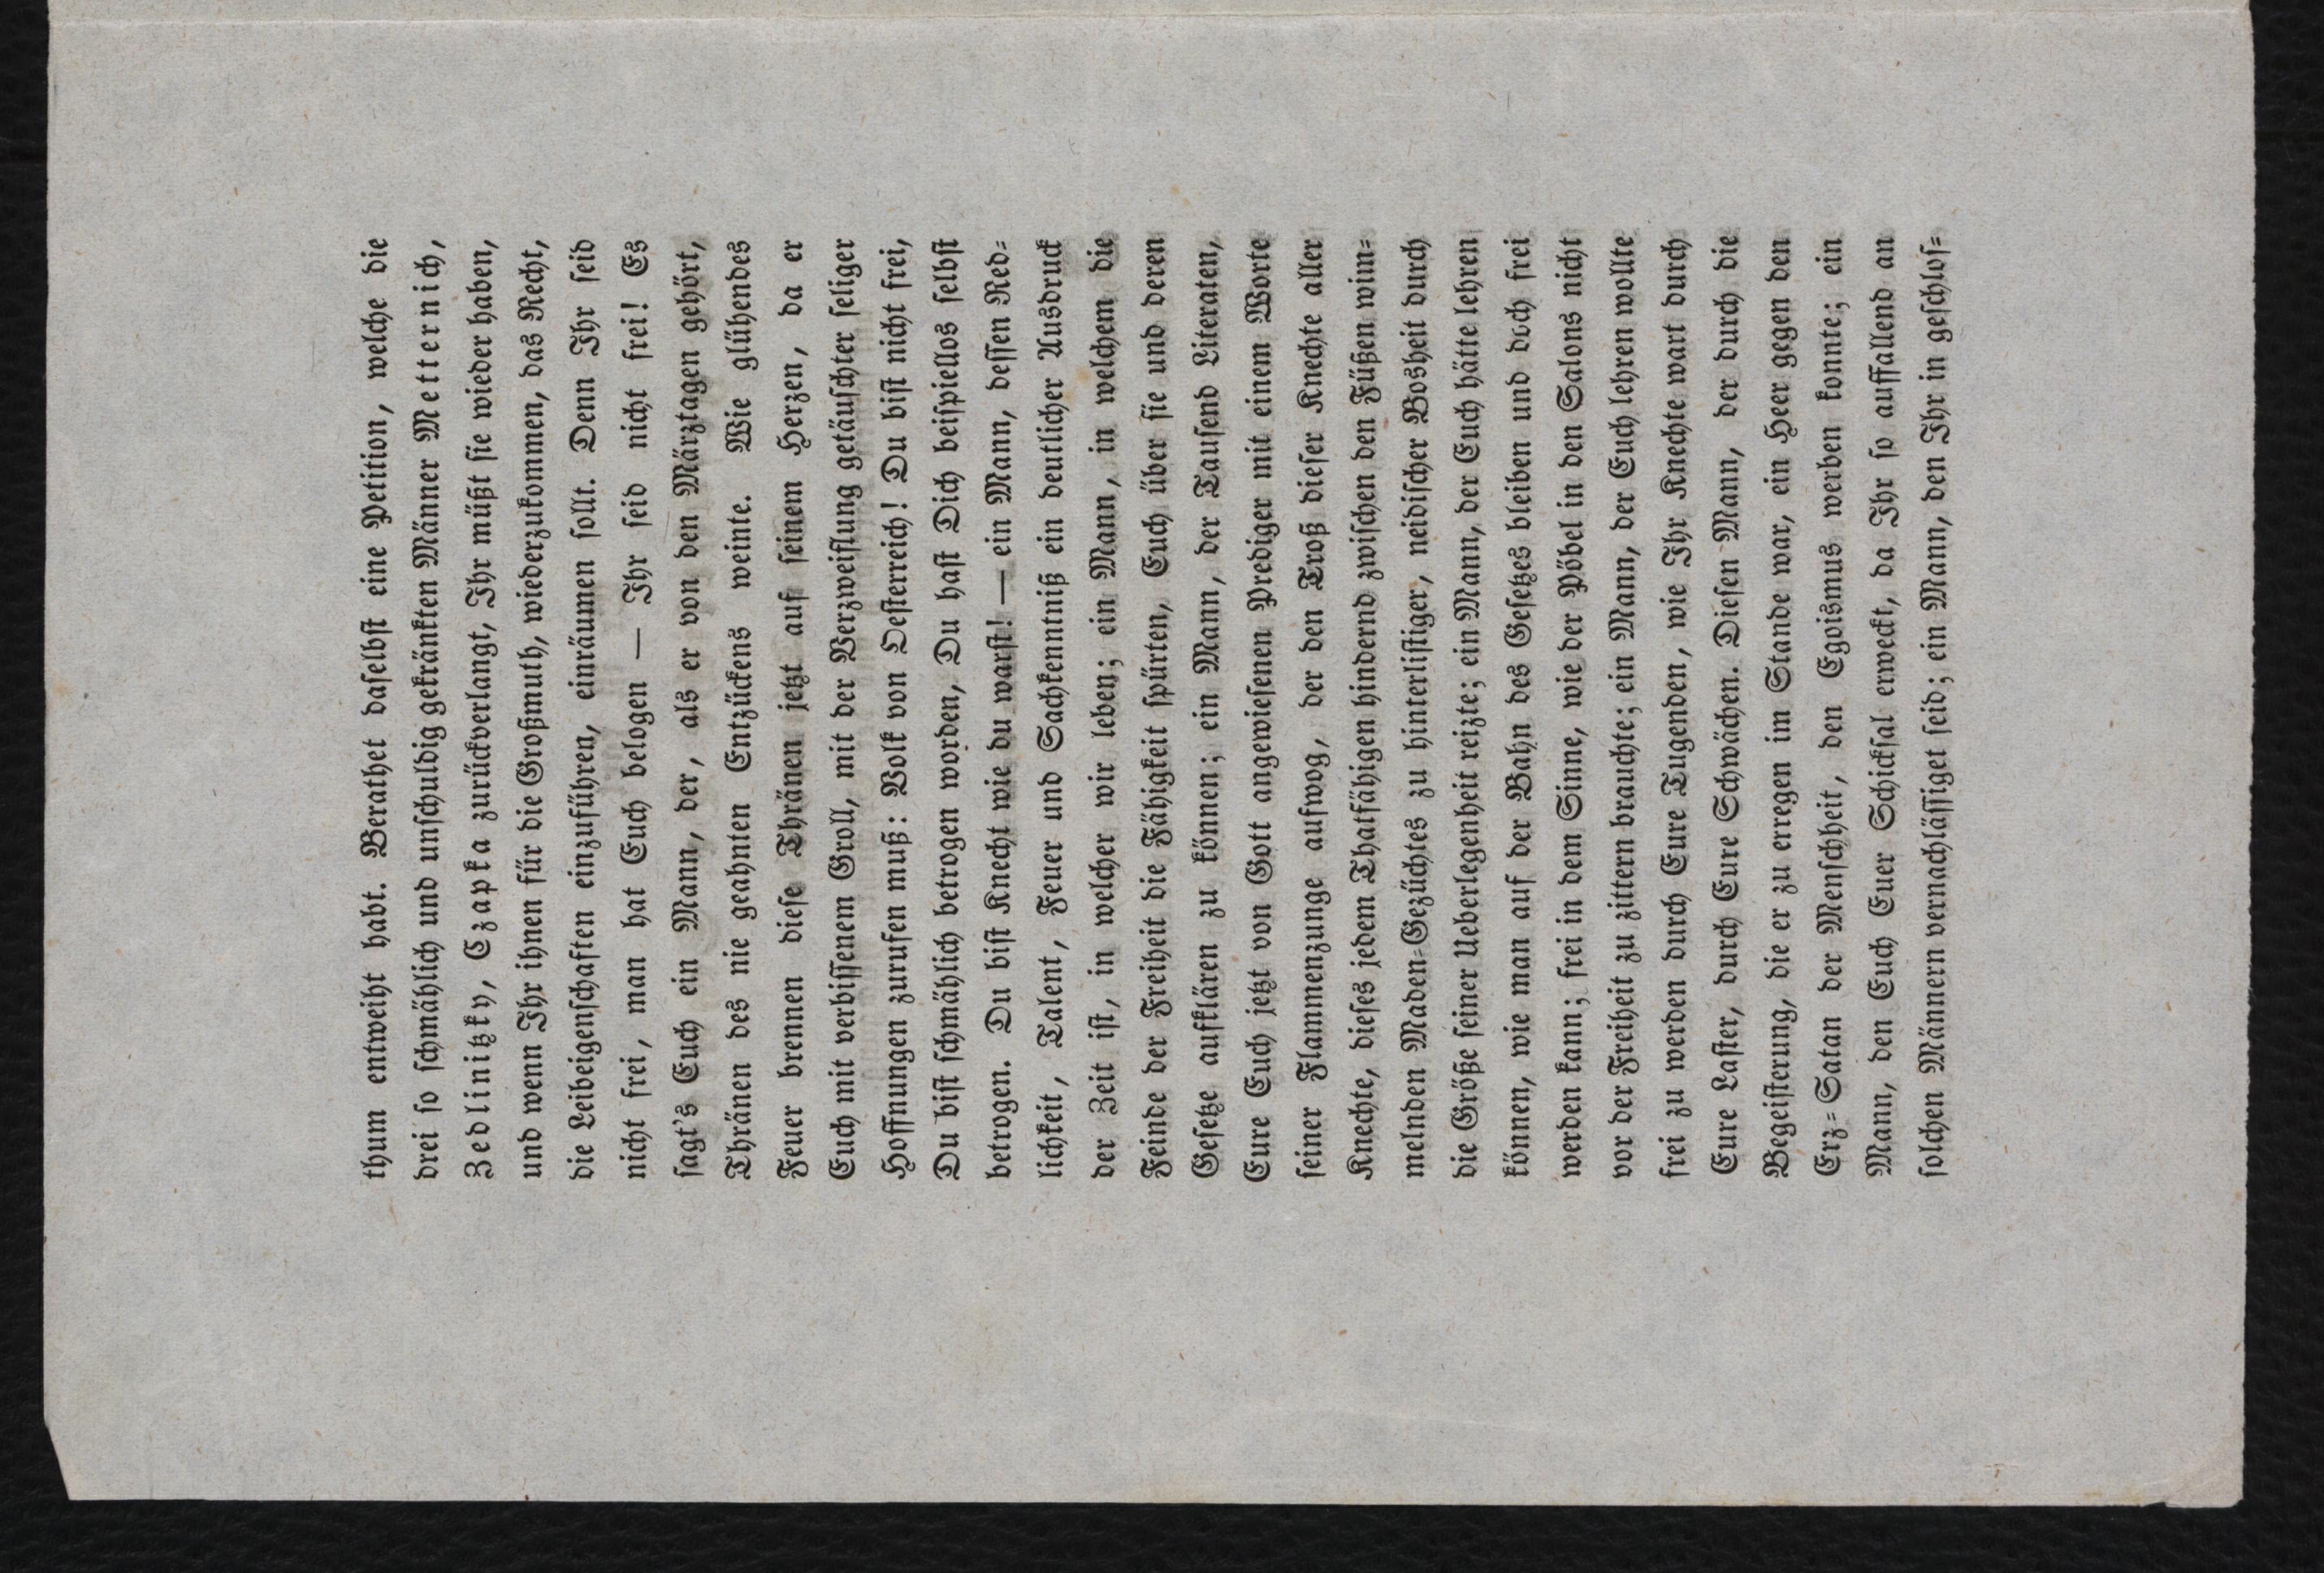 thum entweiht habt. Berathet daselbst eine Petition, welche die
drei so schmählich und unschuldig gekränkten Männer Metternich,
Zedlinitzky, Czapka zurückverlangt, Ihr müßt sie wieder haben,
und wenn Ihr ihnen für die Großmuth, wiederzukommen, das Recht,
die Leibeigenschaften einzuführen, einräumen sollt. Denn Ihr seid
nicht frei, man hat Euch belogen — Ihr seid nicht frei! Es
sagt's Euch ein Mann, der, als er von den Märztagen gehört,
Thränen des nie geahnten Entzückens weinte. Wie glühendes
Feuer brennen diese Thränen jetzt auf seinem Herzen, da er
Euch mit verbissenem Groll, mit der Verzweiflung getäuschter seliger
Hoffnungen zurufen muß: Volk von Oesterreich! Du bist nicht frei,
Du bist schmählich betrogen worden, Du hast Dich beispiellos selbst
betrogen. Du bist Knecht wie du warst! — ein Mann, dessen Red-
lichkeit, Talent, Feuer und Sachkenntniß ein deutlicher Ausdruck
der Zeit ist, in welcher wir leben; ein Mann, in welchem die
Feinde der Freiheit die Fähigkeit spürten, Euch über sie und deren
Gesetze aufklären zu können; ein Mann, der Tausend Literaten,
Eure Euch jetzt von Gott angewiesenen Prediger mit einem Worte
seiner Flammenzunge aufwog, der den Troß dieser Knechte aller
Knechte, dieses jedem Thatfähigen hindernd zwischen den Füßen wim-
melnden Maden-Gezüchtes zu hinterlistiger, neidischer Bosheit durch
die Größe seiner Ueberlegenheit reizte; ein Mann, der Euch hätte lehren
können, wie man auf der Bahn des Gesetzes bleiben und doch frei
werden kann; frei in dem Sinne, wie der Pöbel in den Salons nicht
vor der Freiheit zu zittern brauchte; ein Mann, der Euch lehren wollte
frei zu werden durch Eure Tugenden, wie Ihr Knechte wart durch
Eure Laster, durch Eure Schwächen. Diesen Mann, der durch die
Begeisterung, die er zu erregen im Stande war, ein Heer gegen den
Erz-Satan der Menschheit, den Egoismus werben konnte; ein
Mann, den Euch Euer Schicksal erweckt, da Ihr so auffallend an
solchen Männern vernachlässiget seid; ein Mann, den Ihr in geschlos-